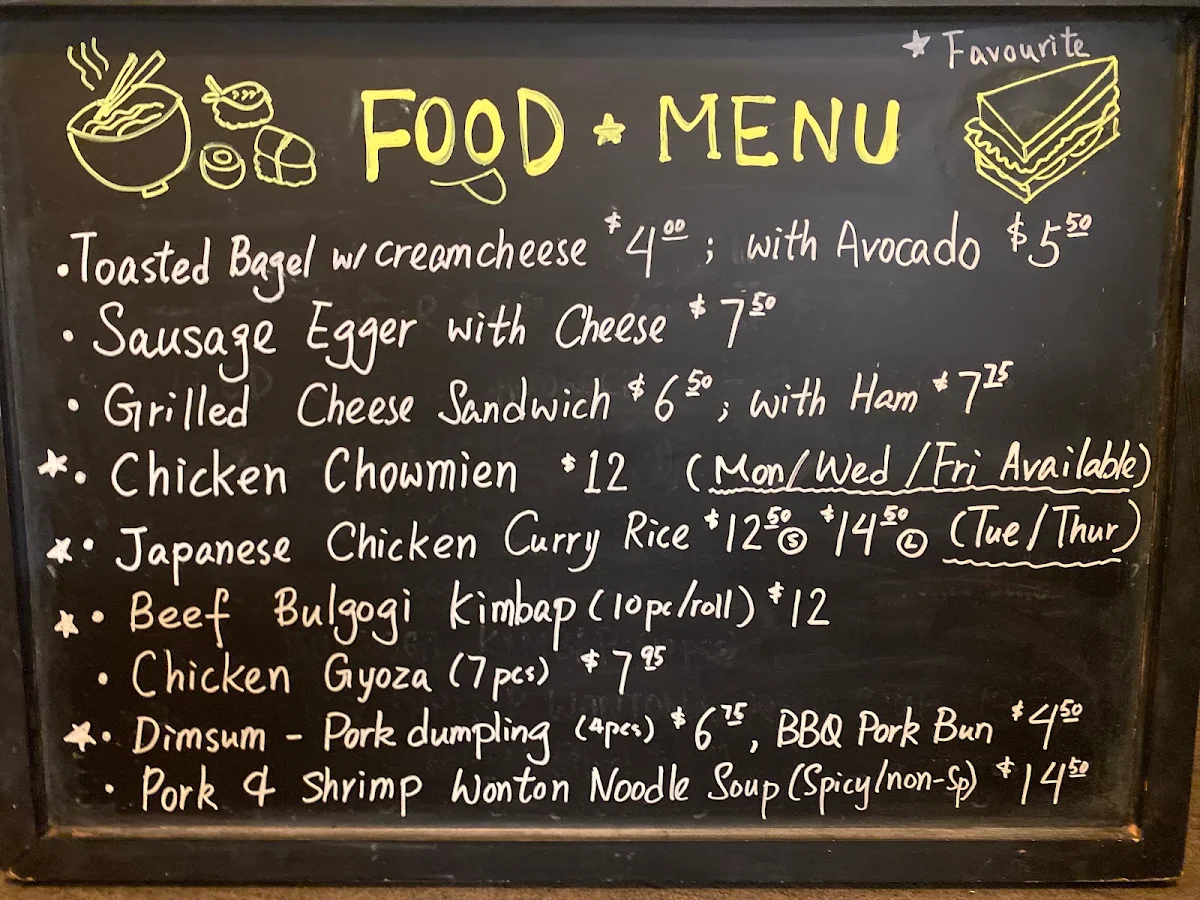 ★ Favourite
FOOD ★ MENU
• Toasted Bagel w/ creamcheese $4.00 ; with Avocado $5.50
• Sausage Egger with Cheese $7.50
• Grilled Cheese Sandwich $6.50 ; with Ham $7.25
★ • Chicken Chowmien $12 (Mon/Wed/Fri Available)
★ • Japanese Chicken Curry Rice $12.50 Ⓢ $14.50 Ⓛ (Tue/Thur)
★ • Beef Bulgogi Kimbap (10pc/roll) $12
• Chicken Gyoza (7pcs) $7.95
★ • Dimsum - Pork dumpling (4pcs) $6.75, BBQ Pork Bun $4.50
• Pork & Shrimp Wonton Noodle Soup (Spicy/non-Sp) $14.50